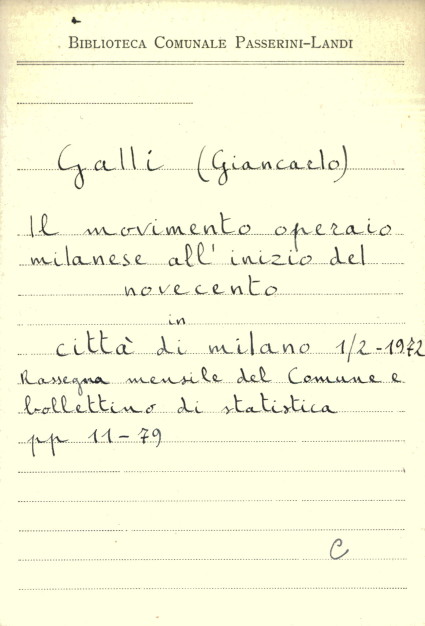 BIBLIOTECA COMUNALE PASSERINI-LANDI
Galli (Giancarlo)
Il movimento operaio
milanese all' inizio del
novecento
in
città di milano 1/2-1972
Rassegna mensile del Comune e
bollettino di statistica
pp 11-79
C